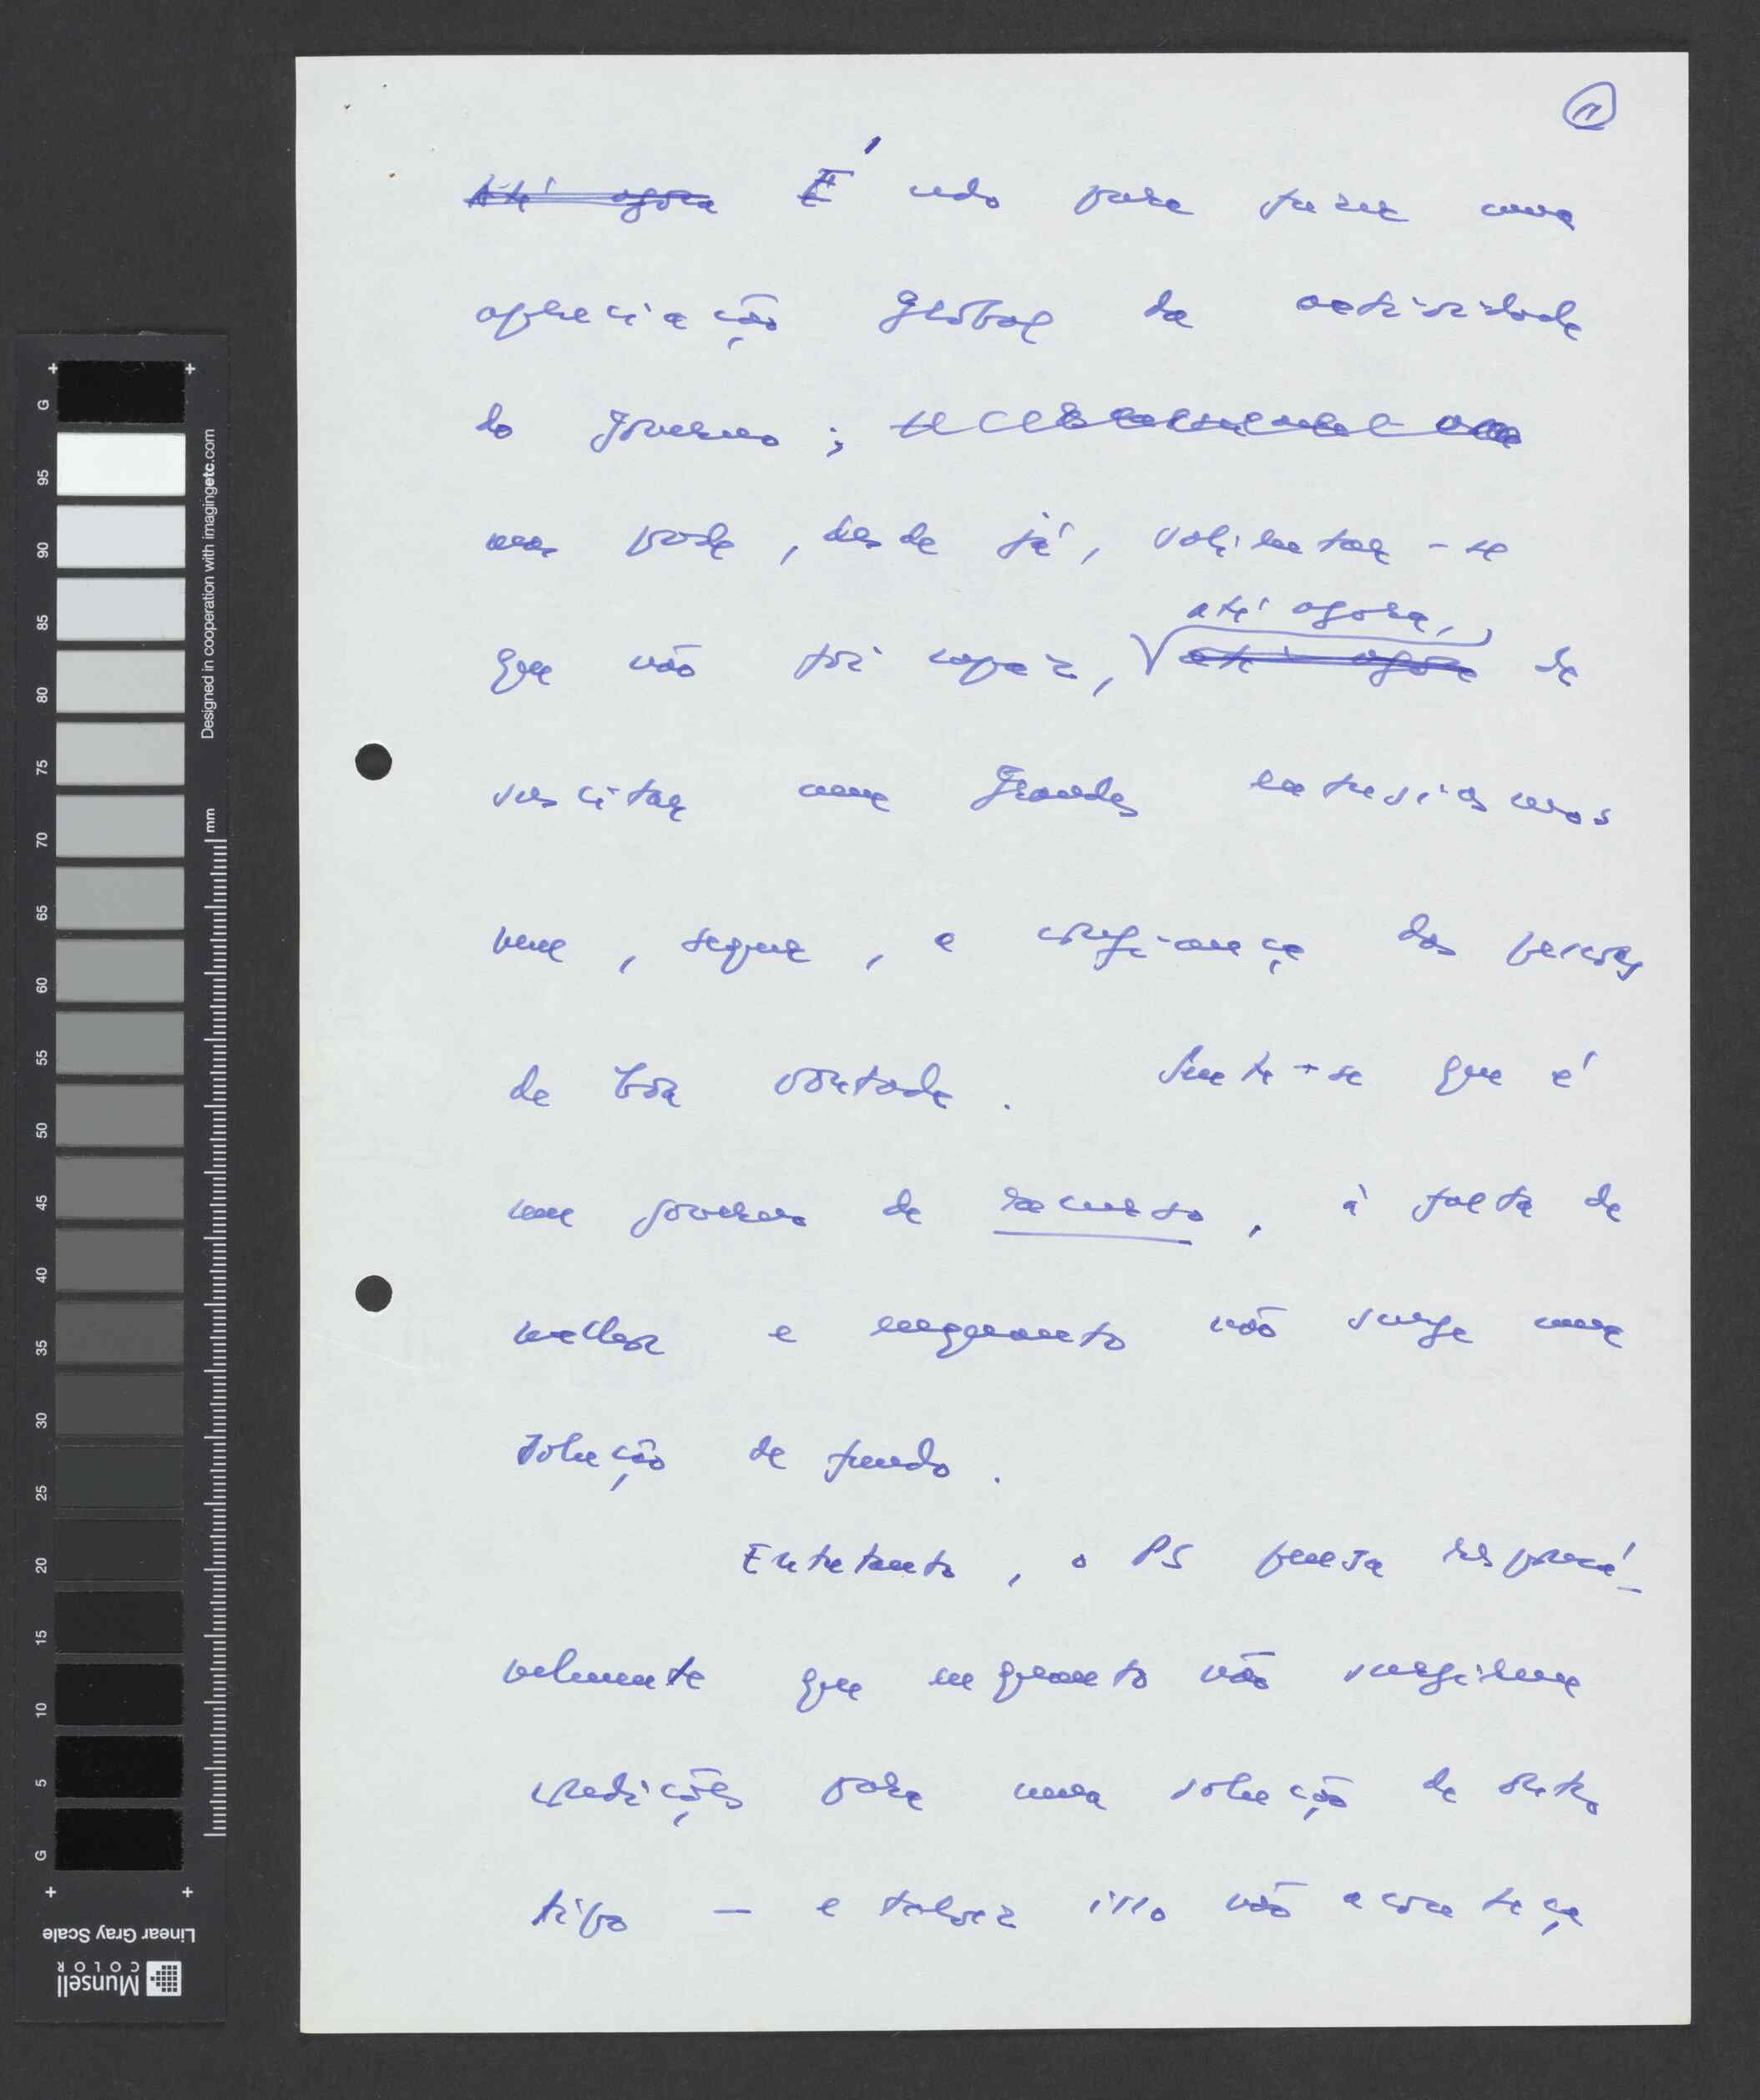 11
Até agora É cedo para fazer uma
apreciação global da actividade
do governo;
mas pode, desde já, salientar-se
até agora,
que não foi capaz, até agora de
suscitar nem grandes entusiasmos
nem, sequer, a confiança das pessoas
de boa vontade. Sente-se que é
um governo de recurso, à falta de
melhor e enquanto não surge uma
solução de fundo.
Entretanto, o PS pensa responsá-
velmente que enquanto não surgirem
condições para uma solução de outro
tipo — e talvez isso não aconteça
G
95
90
85
80
75
70
65
60
55
50
45
40
35
30
25
20
15
10
5
G
mm
Designed in cooperation with imagingetc.com
Linear Gray Scale
Munsell
COLOR